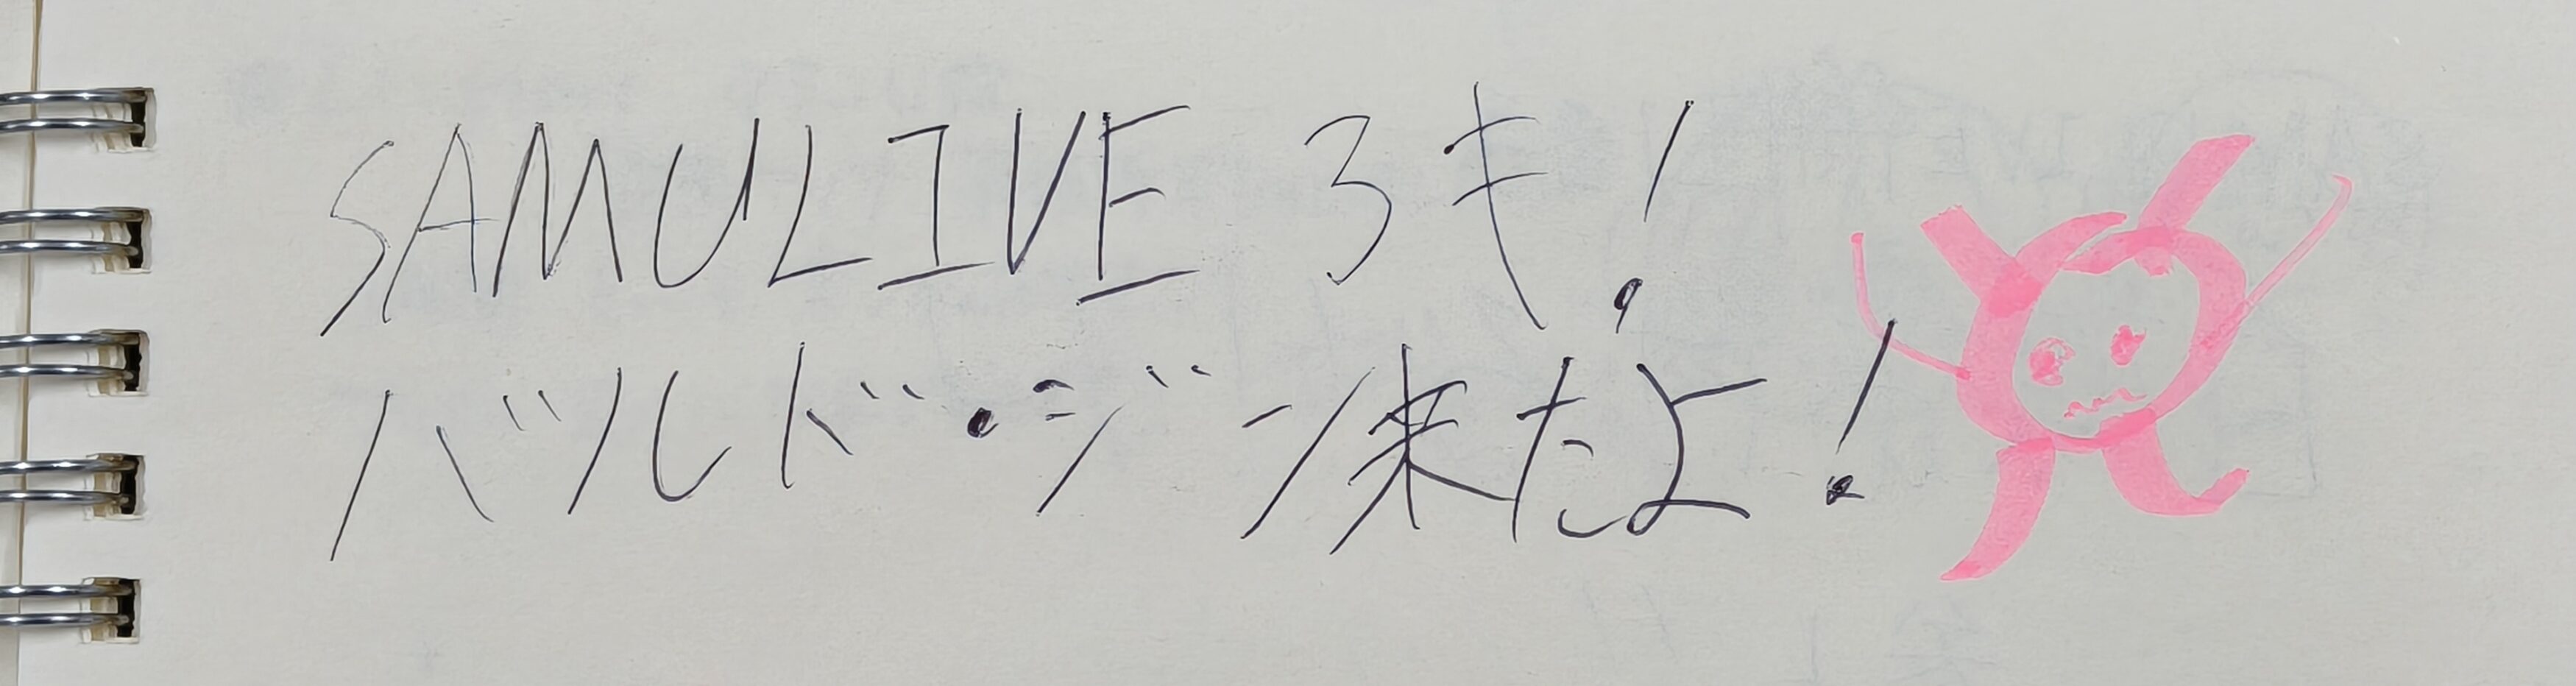 SAMULIVE 3キ!
バルド・ジン来たよ!